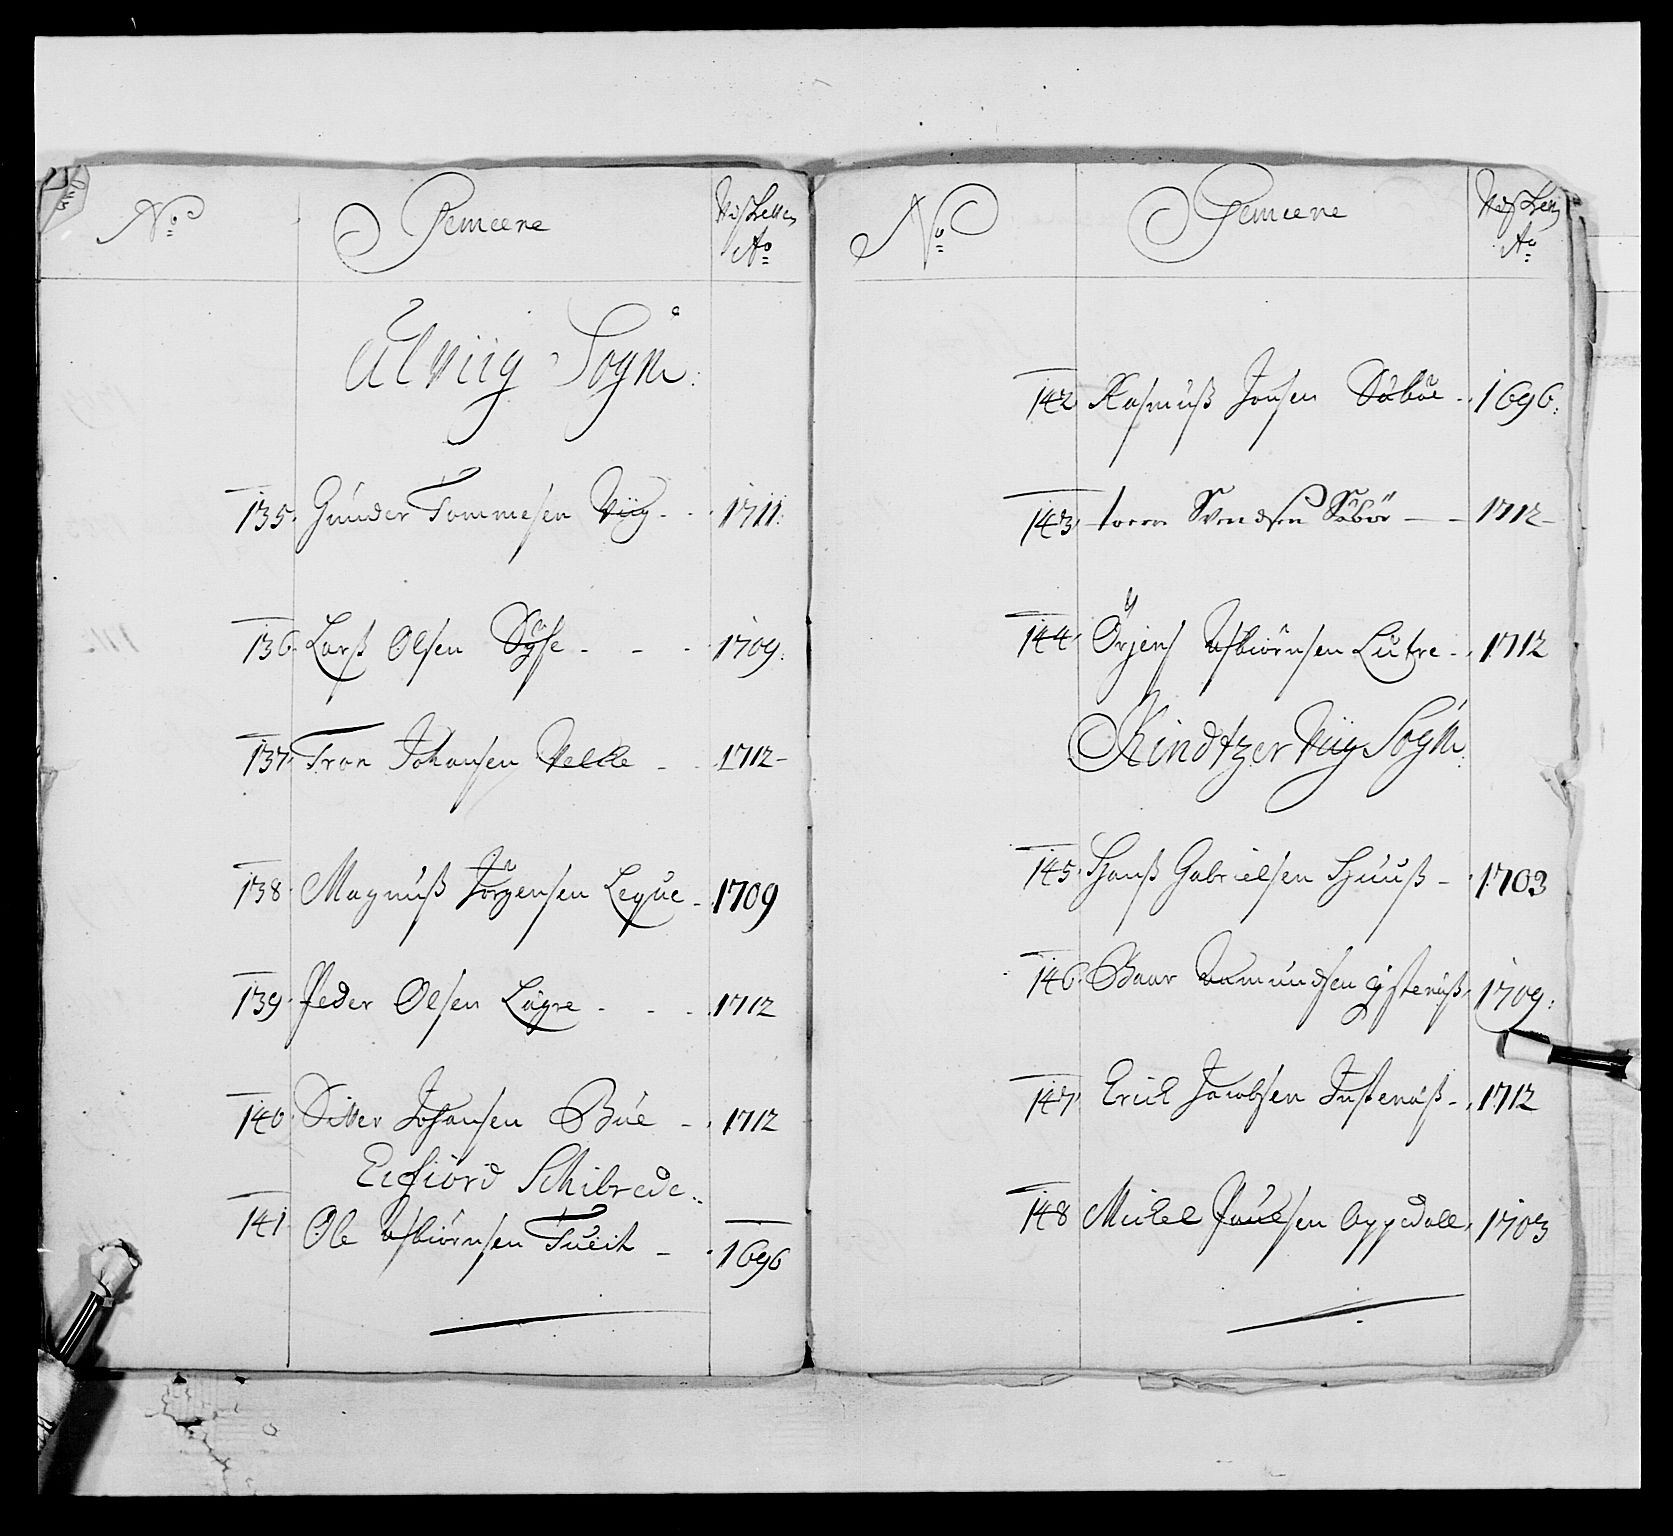 No Gemeene
Ao
Ulviig Sogn:
135. Gunder Tommesen Viig - - 1711:
136. Larß Olsen Syse - - - 1709:
137. Tron Johansen Velke - - 1712 -
138. Magnuß Jörgensen Leque - 1709
139. Peder Olsen Lägre - - - 1712
140. Siver Johansen Büe - . 1712
Eifiord Schibrede:
141. Ole Asbiörnsen Tueit - . 1696
No Gemeene
Ao
142. Rasmuß Jonsen Säbüe - . 1696:
143. Svendsen Säböe - - 1712 -
144. Örjens Asbiörnsen Lutre - . 1712
Kindtzer Viig Sogn:
145. Hanß Gabrielsen Huuß - . 1703
146. Baar Aamundsen 1709:
147. Erick Jacobsen Justenäß - . 1712
148 Mickel Paulsen Oppedall, 1703